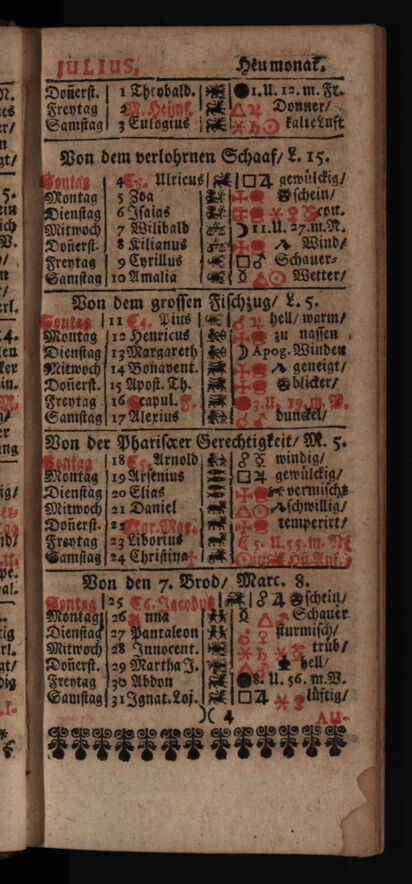 JULIUS, Heumonat.
Doñerst. 1 Theobald. 1. U. 12. m. Fr.
Freytag 2 M. Heims. △♃ Donner/
Samstag 3 Eulogius ✶♄☉ kalte Luft
Von dem verlohrnen Schaaf/ L. 15.
Sontag 4 Ulricus □♃ gewülckig/
Montag 5 Zoa schein/
Dienstag 6 Isaias
Mitwoch 7 Wilibald ☽ 11. U. 27. m. N.
Doñerst. 8 Kilianus Wind/
Freytag 9 Cyrillus □♂ Schauer-
Samstag 10 Amalia ☿ △☉ Wetter/
Von dem grossen Fischzug/ L. 5.
Sontag 11 Pius ♂♃ hell/ warm/
Montag 12 Henricus zu nassen
Dienstag 13 Margareth ☽ Apog. Winden
Mitwoch 14 Bonavent. geneigt/
Doñerst. 15 Apost. Th. blicker/
Freytag 16 Scapul. F. 3. U. 19. m. V.
Samstag 17 Alexius dunckel/
Von der Phariseer Gerechtigkeit/ M. 5.
Sontag 18 Arnold ☍☿ windig/
Montag 19 Arsenius □♃ gewülckig/
Dienstag 20 Elias vermischt
Mitwoch 21 Daniel △☉ schwillig/
Doñerst. 22 Mar. Mag. temperirt/
Freytag 23 Liborius ☾ 5. U. 55. m. N
Samstag 24 Christina
Von den 7. Brod/ Marc. 8.
Sontag 25 Jacobus ☍♃ schein/
Montag 26 Anna ☿ △♂ Schauer
Dienstag 27 Pantaleon ♂♀ sturmisch/
Mitwoch 28 Innocent. trüb/
Doñerst. 29 Martha J. hell/
Freytag 30 Abdon 8. U. 56. m. V.
Samstag 31 Ignat. Loj. □♃ lüftig/
)( 4 AU-